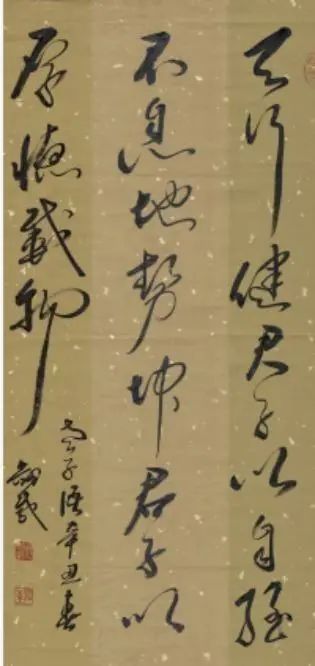 天行健君子以自强
不息地勢坤君子以
厚德載物
孔子語辛丑春